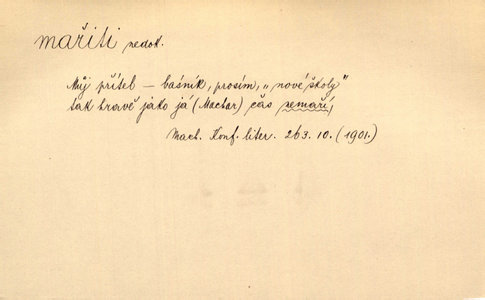 mařiti nedok.
Můj přítel — básník, prosím, „nové školy"
tak hravě jako já (Machar) čas nemaří,
Mach. Konf. liter. 263. 10. (1901.)